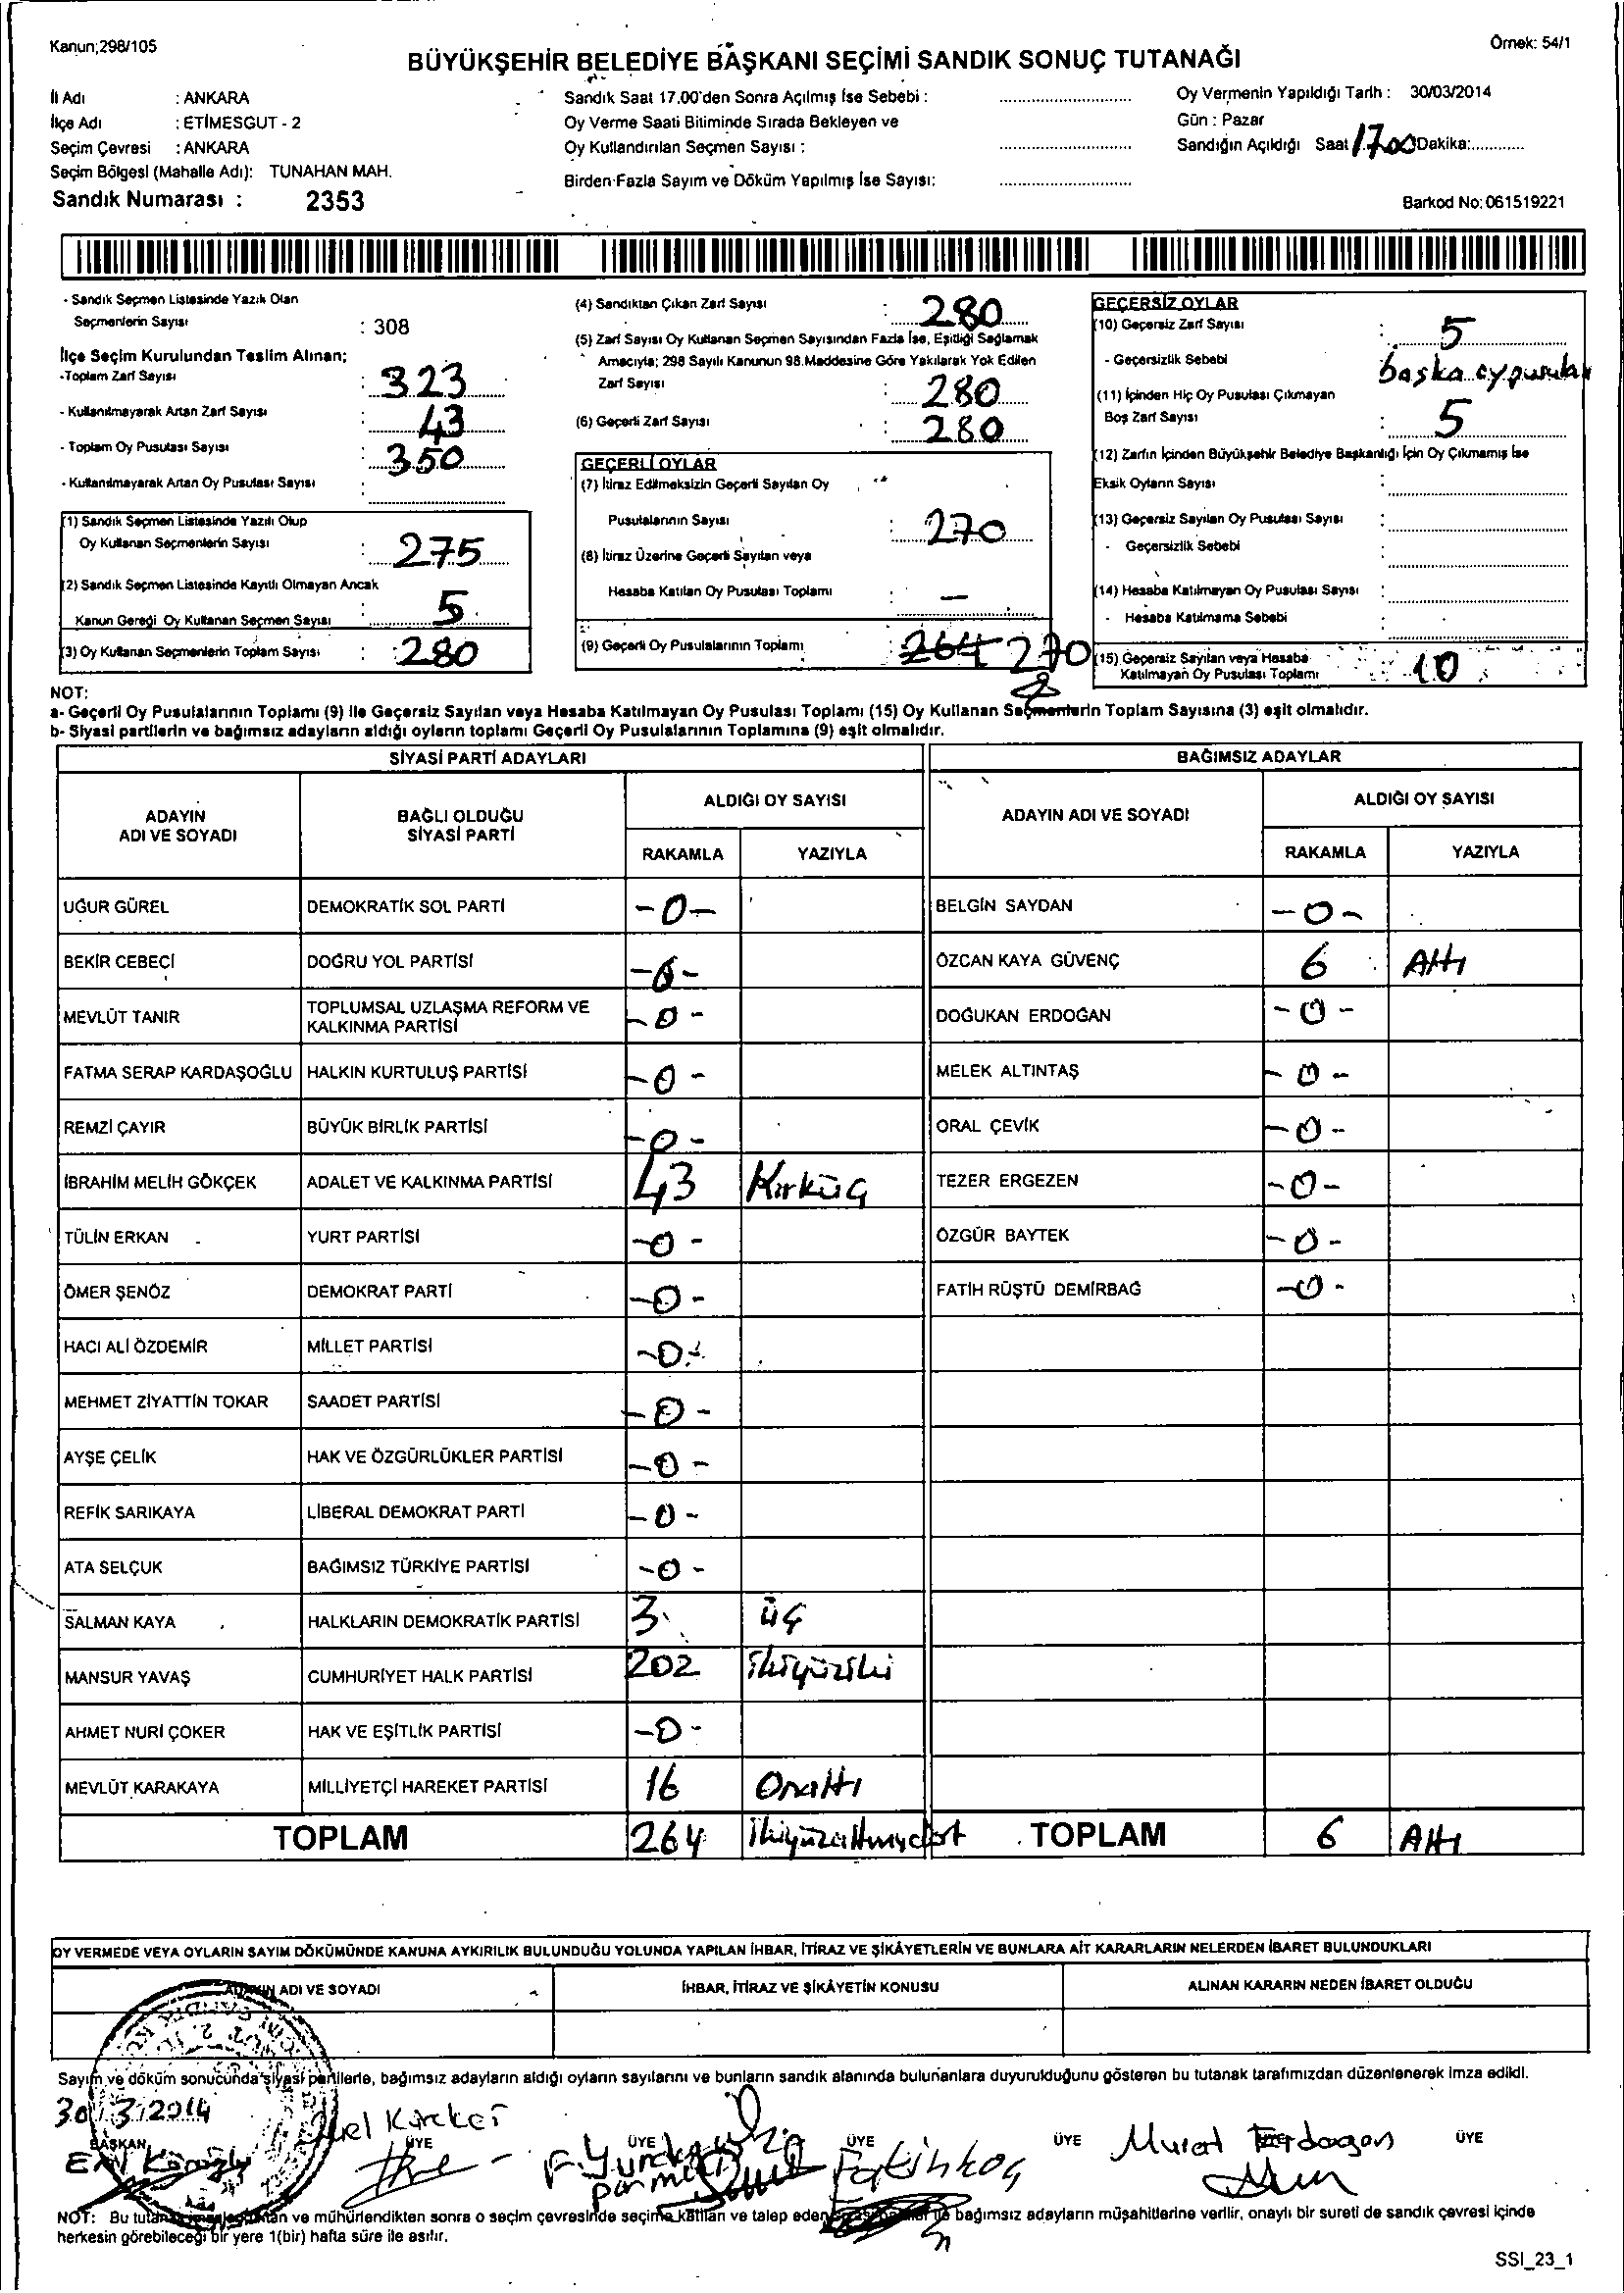 Kanun;298/105
Örnek: 54/1
BÜYÜKŞEHİR BELEDİYE BAŞKANI SEÇİMİ SANDIK SONUÇ TUTANAĞI
İl Adı : ANKARA
İlçe Adı : ETİMESGUT - 2
Seçim Çevresi : ANKARA
Seçim Bölgesi (Mahalle Adı): TUNAHAN MAH.
Sandık Numarası : 2353
Sandık Saat 17.00'den Sonra Açılmış İse Sebebi :
Oy Verme Saati Bitiminde Sırada Bekleyen ve
Oy Kullandırılan Seçmen Sayısı :
Birden Fazla Sayım ve Döküm Yapılmış İse Sayısı:
Oy Vermenin Yapıldığı Tarih : 30/03/2014
Gün : Pazar
Sandığın Açıldığı Saat 17.00 Dakika:
Barkod No: 061519221
- Sandık Seçmen Listesinde Yazılı Olan
Seçmenlerin Sayısı : 308
İlçe Seçim Kurulundan Teslim Alınan;
-Toplam Zarf Sayısı : 323
- Kullanılmayarak Artan Zarf Sayısı : 43
- Toplam Oy Pusulası Sayısı : 350
- Kullanılmayarak Artan Oy Pusulası Sayısı :
(1) Sandık Seçmen Listesinde Yazılı Olup
Oy Kullanan Seçmenlerin Sayısı : 275
(2) Sandık Seçmen Listesinde Kayıtlı Olmayan Ancak
Kanun Gereği Oy Kullanan Seçmen Sayısı : 5
(3) Oy Kullanan Seçmenlerin Toplam Sayısı : 280
(4) Sandıktan Çıkan Zarf Sayısı : 280
(5) Zarf Sayısı Oy Kullanan Seçmen Sayısından Fazla İse, Eşitliği Sağlamak
Amacıyla; 298 Sayılı Kanunun 98.Maddesine Göre Yakılarak Yok Edilen
Zarf Sayısı : 280
(6) Geçerli Zarf Sayısı : 280
GEÇERLİ OYLAR
(7) İtiraz Edilmeksizin Geçerli Sayılan Oy
Pusulalarının Sayısı : 270
(8) İtiraz Üzerine Geçerli Sayılan veya
Hesaba Katılan Oy Pusulası Toplamı : —
(9) Geçerli Oy Pusulalarının Toplamı : 264 270
GEÇERSİZ OYLAR
(10) Geçersiz Zarf Sayısı : 5
- Geçersizlik Sebebi : başka oy pusulası
(11) İçinden Hiç Oy Pusulası Çıkmayan
Boş Zarf Sayısı : 5
(12) Zarfın İçinden Büyükşehir Belediye Başkanlığı İçin Oy Çıkmamış İse
Eksik Oyların Sayısı :
(13) Geçersiz Sayılan Oy Pusulası Sayısı :
- Geçersizlik Sebebi :
(14) Hesaba Katılmayan Oy Pusulası Sayısı :
- Hesaba Katılmama Sebebi :
(15) Geçersiz Sayılan veya Hesaba
Katılmayan Oy Pusulası Toplamı : 10
NOT:
a- Geçerli Oy Pusulalarının Toplamı (9) ile Geçersiz Sayılan veya Hesaba Katılmayan Oy Pusulası Toplamı (15) Oy Kullanan Seçmenlerin Toplam Sayısına (3) eşit olmalıdır.
b- Siyasi partilerin ve bağımsız adayların aldığı oyların toplamı Geçerli Oy Pusulalarının Toplamına (9) eşit olmalıdır.
SİYASİ PARTİ ADAYLARI
BAĞIMSIZ ADAYLAR
ADAYIN ADI VE SOYADI
BAĞLI OLDUĞU SİYASİ PARTİ
ALDIĞI OY SAYISI
RAKAMLA YAZIYLA
ADAYIN ADI VE SOYADI
ALDIĞI OY SAYISI
RAKAMLA YAZIYLA
UĞUR GÜREL DEMOKRATİK SOL PARTİ -0- BELGİN SAYDAN -0-
BEKİR CEBECİ DOĞRU YOL PARTİSİ -0- ÖZCAN KAYA GÜVENÇ 6 Altı
MEVLÜT TANIR TOPLUMSAL UZLAŞMA REFORM VE KALKINMA PARTİSİ -0- DOĞUKAN ERDOĞAN -0-
FATMA SERAP KARDAŞOĞLU HALKIN KURTULUŞ PARTİSİ -0- MELEK ALTINTAŞ -0-
REMZİ ÇAYIR BÜYÜK BİRLİK PARTİSİ -0- ORAL ÇEVİK -0-
İBRAHİM MELİH GÖKÇEK ADALET VE KALKINMA PARTİSİ 43 Kırküç TEZER ERGEZEN -0-
TÜLİN ERKAN YURT PARTİSİ -0- ÖZGÜR BAYTEK -0-
ÖMER ŞENÖZ DEMOKRAT PARTİ -0- FATİH RÜŞTÜ DEMİRBAĞ -0-
HACI ALİ ÖZDEMİR MİLLET PARTİSİ -0-
MEHMET ZİYATTİN TOKAR SAADET PARTİSİ -0-
AYŞE ÇELİK HAK VE ÖZGÜRLÜKLER PARTİSİ -0-
REFİK SARIKAYA LİBERAL DEMOKRAT PARTİ -0-
ATA SELÇUK BAĞIMSIZ TÜRKİYE PARTİSİ -0-
SALMAN KAYA HALKLARIN DEMOKRATİK PARTİSİ 3 üç
MANSUR YAVAŞ CUMHURİYET HALK PARTİSİ 202 ikiyüziki
AHMET NURİ ÇOKER HAK VE EŞİTLİK PARTİSİ -0-
MEVLÜT KARAKAYA MİLLİYETÇİ HAREKET PARTİSİ 16 Onaltı
TOPLAM 264 ikiyüzaltmışdört TOPLAM 6 Altı
OY VERMEDE VEYA OYLARIN SAYIM DÖKÜMÜNDE KANUNA AYKIRILIK BULUNDUĞU YOLUNDA YAPILAN İHBAR, İTİRAZ VE ŞİKÂYETLERİN VE BUNLARA AİT KARARLARIN NELERDEN İBARET BULUNDUKLARI
ADI VE SOYADI
İHBAR, İTİRAZ VE ŞİKÂYETİN KONUSU
ALINAN KARARIN NEDEN İBARET OLDUĞU
Sayım ve döküm sonucunda siyasi partilerle, bağımsız adayların aldığı oyların sayılarını ve bunların sandık alanında bulunanlara duyurulduğunu gösteren bu tutanak tarafımızdan düzenlenerek imza edildi.
30/3/2014
BAŞKAN ÜYE ÜYE ÜYE ÜYE ÜYE
Murat Erdogan
NOT: Bu tutanak ve mühürlendikten sonra o seçim çevresinde seçime katılan ve talep eden bağımsız adayların müşahitlerine verilir, onaylı bir sureti de sandık çevresi içinde
herkesin görebileceği bir yere 1(bir) hafta süre ile asılır.
SSI_23_1